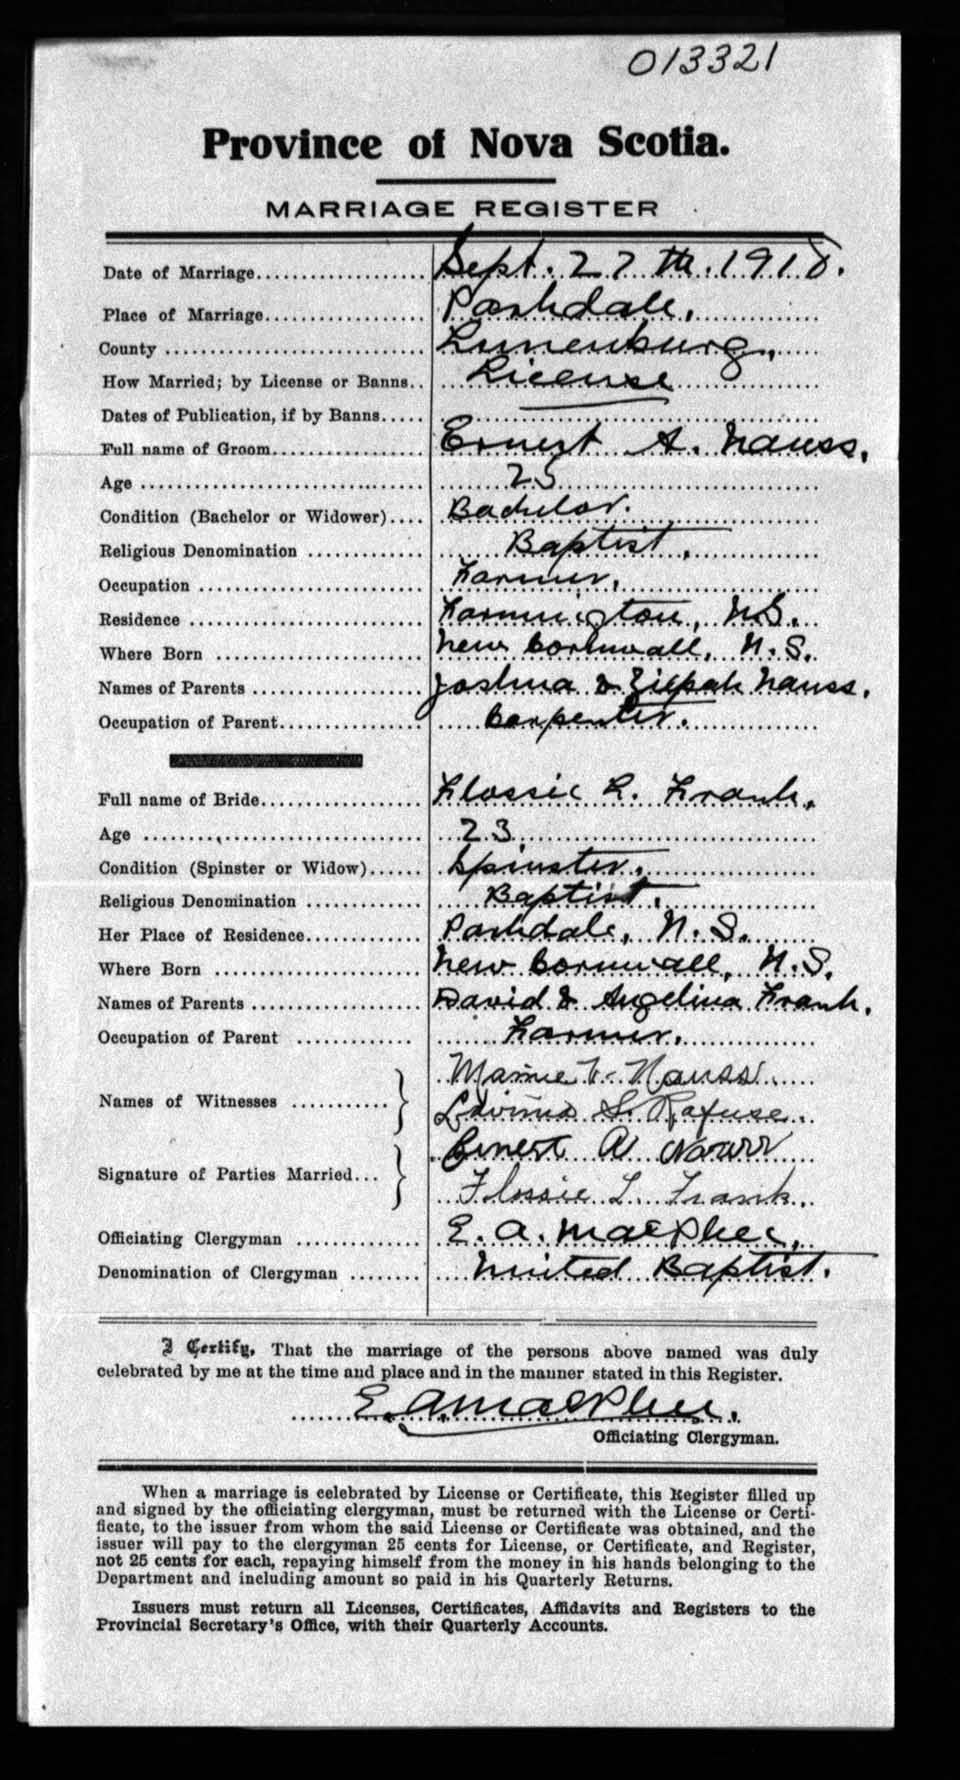 013321
Province of Nova Scotia.
MARRIAGE REGISTER
Date of Marriage Sept. 27th. 1918.
Place of Marriage Parkdale,
County Lunenburg,
How Married; by License or Banns License
Dates of Publication, if by Banns
Full name of Groom Ernest A. Nauss,
Age 25
Condition (Bachelor or Widower) Bachelor.
Religious Denomination Baptist,
Occupation Farmer,
Residence Farmington, N.S.
Where Born New Cornwall, N.S.
Names of Parents Joshua & Zilpah Nauss.
Occupation of Parent Carpenter.
Full name of Bride Flossie L. Frank,
Age 23
Condition (Spinster or Widow) Spinster,
Religious Denomination Baptist,
Her Place of Residence Parkdale, N.S.
Where Born New Cornwall, N.S.
Names of Parents David & Angelina Frank,
Occupation of Parent Farmer.
Mamie V. Nauss
Names of Witnesses
Lavinia S. Rafuse
Ernest A Nauss
Signature of Parties Married
Flossie L. Frank
Officiating Clergyman E. A. MacPhee,
Denomination of Clergyman United Baptist.
I Certify, That the marriage of the persons above named was duly
celebrated by me at the time and place and in the manner stated in this Register.
E. A. MacPhee,
Officiating Clergyman.
When a marriage is celebrated by License or Certificate, this Register filled up
and signed by the officiating clergyman, must be returned with the License or Certi-
ficate, to the issuer from whom the said License or Certificate was obtained, and the
issuer will pay to the clergyman 25 cents for License, or Certificate, and Register,
not 25 cents for each, repaying himself from the money in his hands belonging to the
Department and including amount so paid in his Quarterly Returns.
Issuers must return all Licenses, Certificates, Affidavits and Registers to the
Provincial Secretary's Office, with their Quarterly Accounts.